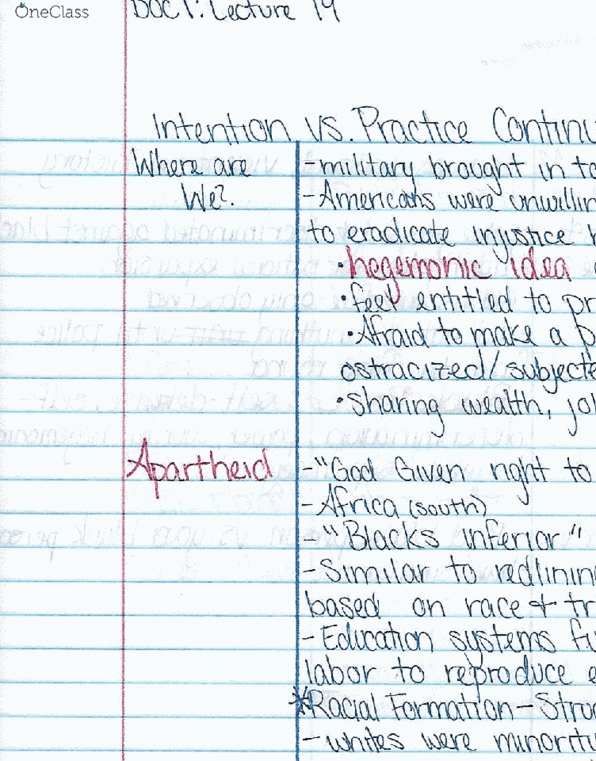 OneClass
DOC 1: Lecture 19
Intention vs. Practice Continu
Where are
We?
-military brought in to
-Americans were unwillin
to eradicate injustice
•hegemonic idea
•feel entitled to pr
•Afraid to make a
ostracized/subjecte
•sharing wealth, jo
Apartheid
-"God Given right to
-Africa (south)
-"Blacks inferior"
-Similar to redlinin
based on race + tr
-Education systems fu
labor to reproduce e
*Racial Formation-Stru
-whites were minority